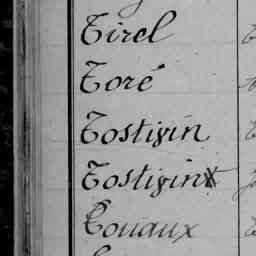 Tirel
Toré
Tostivin
Tostivin
Touaux